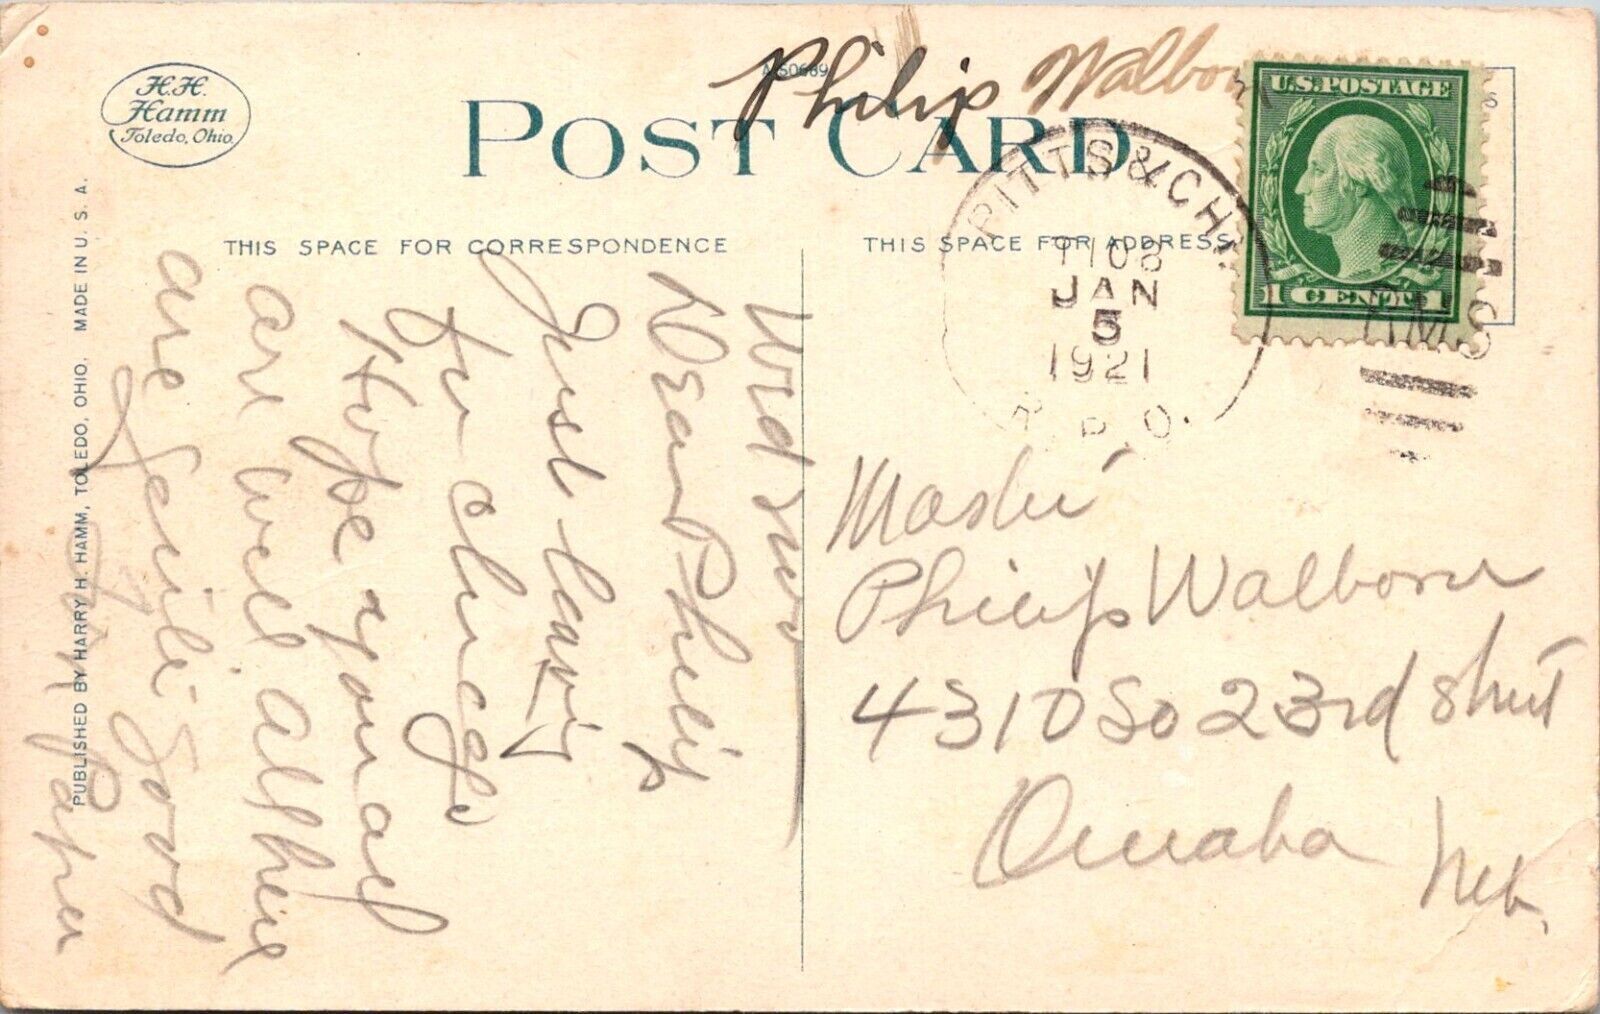 H.H.
Hamm
Toledo, Ohio.
A-50689
POST CARD
Philip Walborn
PITTS & CHI.
T108
JAN
5
1921
R.P.O.
U.S. POSTAGE
1 CENT 1
RMS
THIS SPACE FOR CORRESPONDENCE
THIS SPACE FOR ADDRESS
PUBLISHED BY HARRY H. HAMM, TOLEDO, OHIO. MADE IN U. S. A.
Wed
Dear Philip
Just leaving
for chicago
Hope you all
are well all here
are feeling good
Master
Philip Walborn
4310 So 23rd Street
Omaha
Neb.